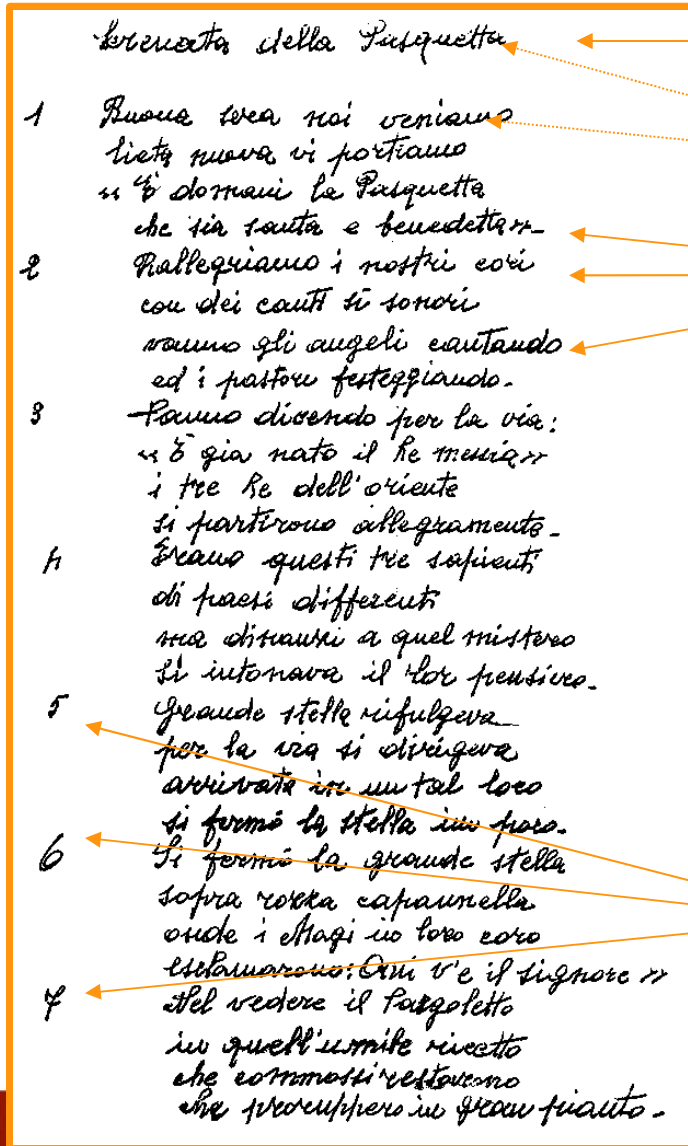 Serenata della Pasquetta
1 Buona sera noi veniamo
lieta nuova vi portiamo
« È domani la Pasquetta
che sia santa e benedetta».
2 Rallegriamo i nostri cori
con dei canti sì sonori
vanno gli angeli cantando
ed i pastori festeggiando.
3 Vanno dicendo per la via:
« È già nato il Re messia»
i tre Re dell'oriente
si partirono allegramente.
4 Erano questi tre sapienti
di paesi differenti
ma dinanzi a quel mistero
si intonava il lor pensiero.
5 Grande stella rifulgeva
per la via si dirigeva
arrivata in un tal loco
si fermò la stella un poco.
6 Si fermò la grande stella
sopra rozza capannella
onde i Magi in loro coro
esclamarono: Qui v'è il signore »
7 Nel vedere il Pargoletto
in quell'umile ricetto
che commossi restarono
che proruppero in gran pianto.